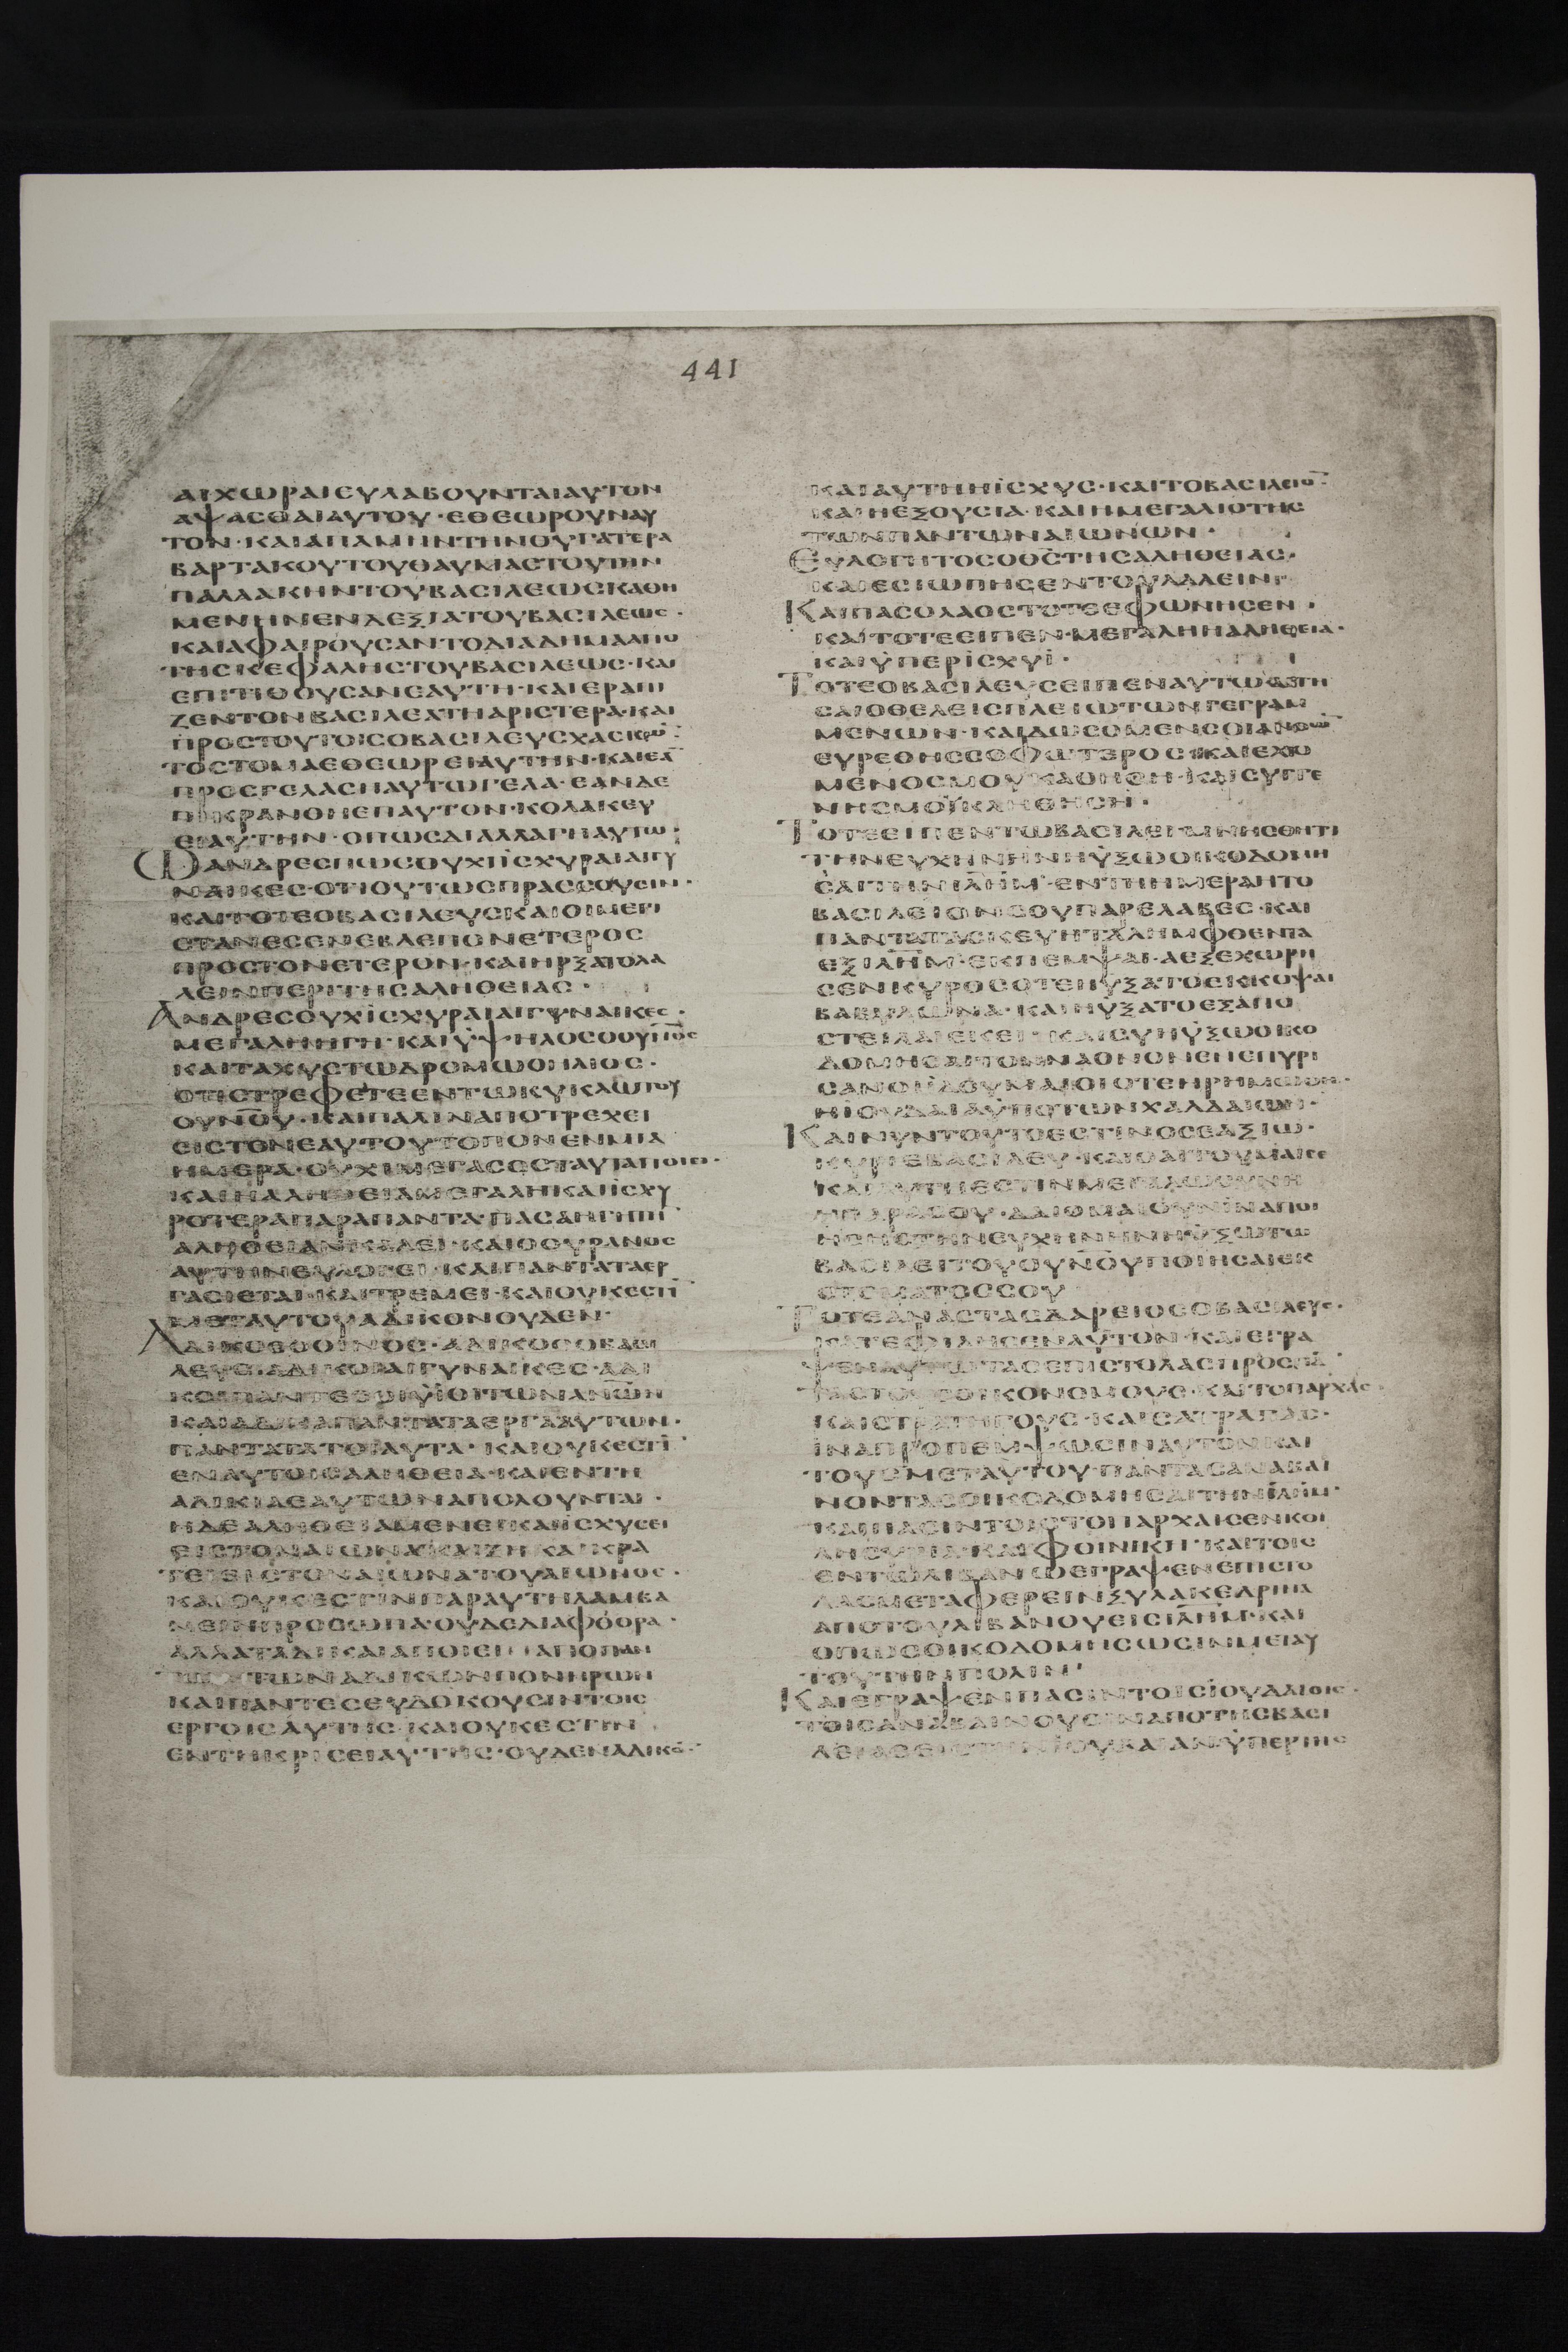 441
ΑΙΧΩΡΑΙΕΥΛΑΒΟΥΝΤΑΙΑΥΤΟΝ
ΑΨΑΣΘΑΙΑΥΤΟΥ·ΕΘΕΩΡΟΥΝΑΥ
ΤΟΝ·ΚΑΙΑΠΑΜΗΝΤΗΝΘΥΓΑΤΕΡΑ
ΒΑΡΤΑΚΟΥΤΟΥΘΑΥΜΑΣΤΟΥΤΗΝ
ΠΑΛΛΑΚΗΝΤΟΥΒΑΣΙΛΕΩΣΚΑΘΗ
ΜΕΝΗΝΕΝΔΕΞΙΑΤΟΥΒΑΣΙΛΕΩΣ·
ΚΑΙΑΦΑΙΡΟΥΣΑΝΤΟΔΙΑΔΗΜΑΑΠΟ
ΤΗΣΚΕΦΑΛΗΣΤΟΥΒΑΣΙΛΕΩΣ·ΚΑΙ
ΕΠΙΤΙΘΟΥΣΑΝΕΑΥΤΗ·ΚΑΙΕΡΑΠΙ
ΖΕΝΤΟΝΒΑΣΙΛΕΑΤΗΑΡΙΣΤΕΡΑ·ΚΑΙ
ΠΡΟΣΤΟΥΤΟΙΣΟΒΑΣΙΛΕΥΣΧΑΣΚΩ̅
ΤΟΣΤΟΜΑΕΘΕΩΡΕΙΑΥΤΗΝ·ΚΑΙΕΑ̅
ΠΡΟΣΓΕΛΑΣΗΑΥΤΩΓΕΛΑ·ΕΑΝΔΕ
ΠΙΚΡΑΝΘΗΕΠΑΥΤΟΝ·ΚΟΛΑΚΕΥ
ΕΙΑΥΤΗΝ·ΟΠΩΣΔΙΑΛΛΑΓΗΑΥΤΩ·
ΩΑΝΔΡΕΣΠΩΣΟΥΧΙΙΣΧΥΡΑΙΑΙΓΥ
ΝΑΙΚΕΣ·ΟΤΙΟΥΤΩΣΠΡΑΣΣΟΥΣΙΝ·
ΚΑΙΤΟΤΕΟΒΑΣΙΛΕΥΣΚΑΙΟΙΜΕΓΙ
ΣΤΑΝΕΣΕΝΕΒΛΕΠΟΝΕΤΕΡΟΣ
ΠΡΟΣΤΟΝΕΤΕΡΟΝ·ΚΑΙΗΡΞΑΤΟΛΑ
ΛΕΙΝΠΕΡΙΤΗΣΑΛΗΘΕΙΑΣ·
ΑΝΔΡΕΣΟΥΧΙΣΧΥΡΑΙΑΙΓΥΝΑΙΚΕΣ·
ΜΕΓΑΛΗΗΓΗ·ΚΑΙΥΨΗΛΟΣΟΟΥΝ̅Ο̅Σ̅
ΚΑΙΤΑΧΥΣΤΩΔΡΟΜΩΟΗΛΙΟΣ·
ΟΤΙΣΤΡΕΦΕΤΕΕΝΤΩΚΥΚΛΩΤΟΥ
ΟΥΝ̅Ο̅Υ̅·ΚΑΙΠΑΛΙΝΑΠΟΤΡΕΧΕΙ
ΕΙΣΤΟΝΕΑΥΤΟΥΤΟΠΟΝΕΝΜΙΑ
ΗΜΕΡΑ·ΟΥΧΙΜΕΓΑΣΟΣΤΑΥΤΑΠΟΙΕΙ·
ΚΑΙΗΑΛΗΘΕΙΑΜΕΓΑΛΗΚΑΙΙΣΧΥ
ΡΟΤΕΡΑΠΑΡΑΠΑΝΤΑ·ΠΑΣΑΗΓΗΤΗ̅
ΑΛΗΘΕΙΑΝΚΑΛΕΙ·ΚΑΙΟΟΥΡΑΝΟΣ
ΑΥΤΗΝΕΥΛΟΓΕΙ·ΚΑΙΠΑΝΤΑΤΑΕΡ
ΓΑΣΙΕΤΑΙ·ΚΑΙΤΡΕΜΕΙ·ΚΑΙΟΥΚΕΣΤΙ̅
ΜΕΤΑΥΤΟΥΑΔΙΚΟΝΟΥΔΕΝ·
ΑΔΙΚΟΣΟΟΙΝΟΣ·ΑΔΙΚΟΣΟΒΑΣΙ
ΛΕΥΣ·ΑΔΙΚΟΙΑΙΓΥΝΑΙΚΕΣ·ΑΔΙ
ΚΟΙΠΑΝΤΕΣΟΙΥΙΟΙΤΩΝΑΝ̅Ω̅Ν̅
ΚΑΙΑΔΙΚΑΠΑΝΤΑΤΑΕΡΓΑΑΥΤΩΝ·
ΠΑΝΤΑΤΑΤΟΙΑΥΤΑ·ΚΑΙΟΥΚΕΣΤΙ̅
ΕΝΑΥΤΟΙΣΑΛΗΘΕΙΑ·ΚΑΙΕΝΤΗ
ΑΔΙΚΙΑΕΑΥΤΩΝΑΠΟΛΟΥΝΤΑΙ·
ΗΔΕΑΛΗΘΕΙΑΜΕΝΕΙΚΑΙΙΣΧΥΣΕΙ
ΕΙΣΤΟΝΑΙΩΝΑ·ΚΑΙΖΗΚΑΙΚΡΑ
ΤΕΙΕΙΣΤΟΝΑΙΩΝΑΤΟΥΑΙΩΝΟΣ·
ΚΑΙΟΥΚΕΣΤΙΝΠΑΡΑΥΤΗΛΑΜΒΑ
ΝΕΙΝΠΡΟΣΩΠΑ·ΟΥΔΕΔΙΑΦΘΟΡΑ·
ΑΛΛΑΤΑΔΙΚΑΙΑΠΟΙΕΙΑΠΟΠΑΝ
ΤΩΝΑΔΙΚΩΝΠΟΝΗΡΩΝ
ΚΑΙΠΑΝΤΕΣΕΥΔΟΚΟΥΣΙΝΤΟΙΣ
ΕΡΓΟΙΣΑΥΤΗΣ·ΚΑΙΟΥΚΕΣΤΙΝ
ΕΝΤΗΚΡΙΣΕΙΑΥΤΗΣ·ΟΥΔΕΝΑΔΙΚΟ̅·
ΚΑΙΑΥΤΗΗΙΣΧΥΣ·ΚΑΙΤΟΒΑΣΙΛΕΙΟ̅·
ΚΑΙΗΕΞΟΥΣΙΑ·ΚΑΙΗΜΕΓΑΛΙΟΤΗΣ
ΤΩΝΠΑΝΤΩΝΑΙΩΝΩΝ·
ΕΥΛΟΓΗΤΟΣΟΘ̅Σ̅ΤΗΣΑΛΗΘΕΙΑΣ·
ΚΑΙΕΣΙΩΠΗΣΕΝΤΟΥΛΑΛΕΙΝ·
ΚΑΙΠΑΣΟΛΑΟΣΤΟΤΕΕΦΩΝΗΣΕΝ·
ΚΑΙΤΟΤΕΕΙΠΕΝ·ΜΕΓΑΛΗΗΑΛΗΘΕΙΑ·
ΚΑΙΥΠΕΡΙΣΧΥΙ·
ΤΟΤΕΟΒΑΣΙΛΕΥΣΕΙΠΕΝΑΥΤΩΑΙΤΗ
ΣΑΙΟΘΕΛΕΙΣΠΛΕΙΩΤΩΝΓΕΓΡΑΜ
ΜΕΝΩΝ·ΚΑΙΔΩΣΟΜΕΝΣΟΙΑΝΘΩ̅
ΕΥΡΕΘΗΣΣΟΦΩΤΕΡΟΣ·ΚΑΙΕΧΟ
ΜΕΝΟΣΜΟΥΚΑΘΗΣΗ·ΚΑΙΣΥΓΓΕ
ΝΗΣΜΟΙΚΛΗΘΗΣΗ·
ΤΟΤΕΕΙΠΕΝΤΩΒΑΣΙΛΕΙΜΝΗΣΘΗΤΙ
ΤΗΝΕΥΧΗΝΗΝΗΥΞΩΟΙΚΟΔΟΜΗ
ΣΑΙΤΗΝΙΛ̅Η̅Μ̅·ΕΝΤΗΗΜΕΡΑΗΤΟ
ΒΑΣΙΛΕΙΟΝΣΟΥΠΑΡΕΛΑΒΕΣ·ΚΑΙ
ΠΑΝΤΑΤΑΣΚΕΥΗΤΑΛΗΜΦΘΕΝΤΑ
ΕΞΙΛ̅Η̅Μ̅·ΕΚΠΕΜΨΑΙ·ΑΕΞΕΧΩΡΗ
ΣΕΝΚΥΡΟΣΟΤΕΗΥΞΑΤΟΕΚΚΟΨΑΙ
ΒΑΒΥΛΩΝΑ·ΚΑΙΗΥΞΑΤΟΕΞΑΠΟ
ΣΤΕΙΛΑΙΕΚΕΙ·ΚΑΙΣΥΗΥΞΩΟΙΚΟ
ΔΟΜΗΣΑΙΤΟΝΝΑΟΝΟΝΕΝΕΠΥΡΙ
ΣΑΝΟΙΙΔΟΥΜΑΙΟΙΟΤΕΗΡΗΜΩΘΗ·
ΗΙΟΥΔΑΙΑΥΠΟΤΩΝΧΑΛΔΑΙΩΝ·
ΚΑΙΝΥΝΤΟΥΤΟΕΣΤΙΝΟΣΕΑΞΙΩ·
ΚΥΡΙΕΒΑΣΙΛΕΥ·ΚΑΙΟΑΙΤΟΥΜΑΙΣΕ
ΚΑΙΑΥΤΗΕΣΤΙΝΜΕΓΑΛΩΣΥΝΗ
ΗΠΑΡΑΣΟΥ·ΔΑΙΟΜΑΙΟΥΝΙΝΑΠΟΙ
ΗΣΗΣΤΗΝΕΥΧΗΝΗΝΗΥΞΩΤΩ
ΒΑΣΙΛΕΙΤΟΥΟΥΝ̅Ο̅Υ̅ΠΟΙΗΣΑΙΕΚ
ΣΤΟΜΑΤΟΣΣΟΥ
ΤΟΤΕΑΝΑΣΤΑΣΔΑΡΕΙΟΣΟΒΑΣΙΛΕΥΣ·
ΚΑΤΕΦΙΛΗΣΕΝΑΥΤΟΝ·ΚΑΙΕΓΡΑ
ΨΕΝΑΥΤΩΤΑΣΕΠΙΣΤΟΛΑΣΠΡΟΣΠΑ̅
ΤΑΣΤΟΥΣΟΙΚΟΝΟΜΟΥΣ·ΚΑΙΤΟΠΑΡΧΑΣ·
ΚΑΙΣΤΡΑΤΗΓΟΥΣ·ΚΑΙΣΑΤΡΑΠΑΣ·
ΙΝΑΠΡΟΠΕΜΨΩΣΙΝΑΥΤΟΝΚΑΙ
ΤΟΥΣΜΕΤΑΥΤΟΥ·ΠΑΝΤΑΣΑΝΑΒΑΙ
ΝΟΝΤΑΣΟΙΚΟΔΟΜΗΣΑΙΤΗΝΙΛ̅Η̅Μ̅·
ΚΑΙΠΑΣΙΝΤΟΙΣΤΟΠΑΡΧΑΙΣΕΝΚΟΙ
ΛΗΣΥΡΙΑ·ΚΑΙΦΟΙΝΙΚΗ·ΚΑΙΤΟΙΣ
ΕΝΤΩΛΙΒΑΝΩΕΓΡΑΨΕΝΕΠΙΣΤΟ
ΛΑΣΜΕΤΑΦΕΡΕΙΝΞΥΛΑΚΕΔΡΙΝΑ
ΑΠΟΤΟΥΛΙΒΑΝΟΥΕΙΣΙΛ̅Η̅Μ̅·ΚΑΙ
ΟΠΩΣΟΙΚΟΔΟΜΗΣΩΣΙΝΜΕΤΑΥ
ΤΟΥΤΗΝΠΟΛΙΝ·
ΚΑΙΕΓΡΑΨΕΝΠΑΣΙΝΤΟΙΣΙΟΥΔΑΙΟΙΣ·
ΤΟΙΣΑΝΑΒΑΙΝΟΥΣΙΝΑΠΟΤΗΣΒΑΣΙ
ΛΕΙΑΣΕΙΣΤΗΝΙΟΥΔΑΙΑΝΥΠΕΡΤΗΣ